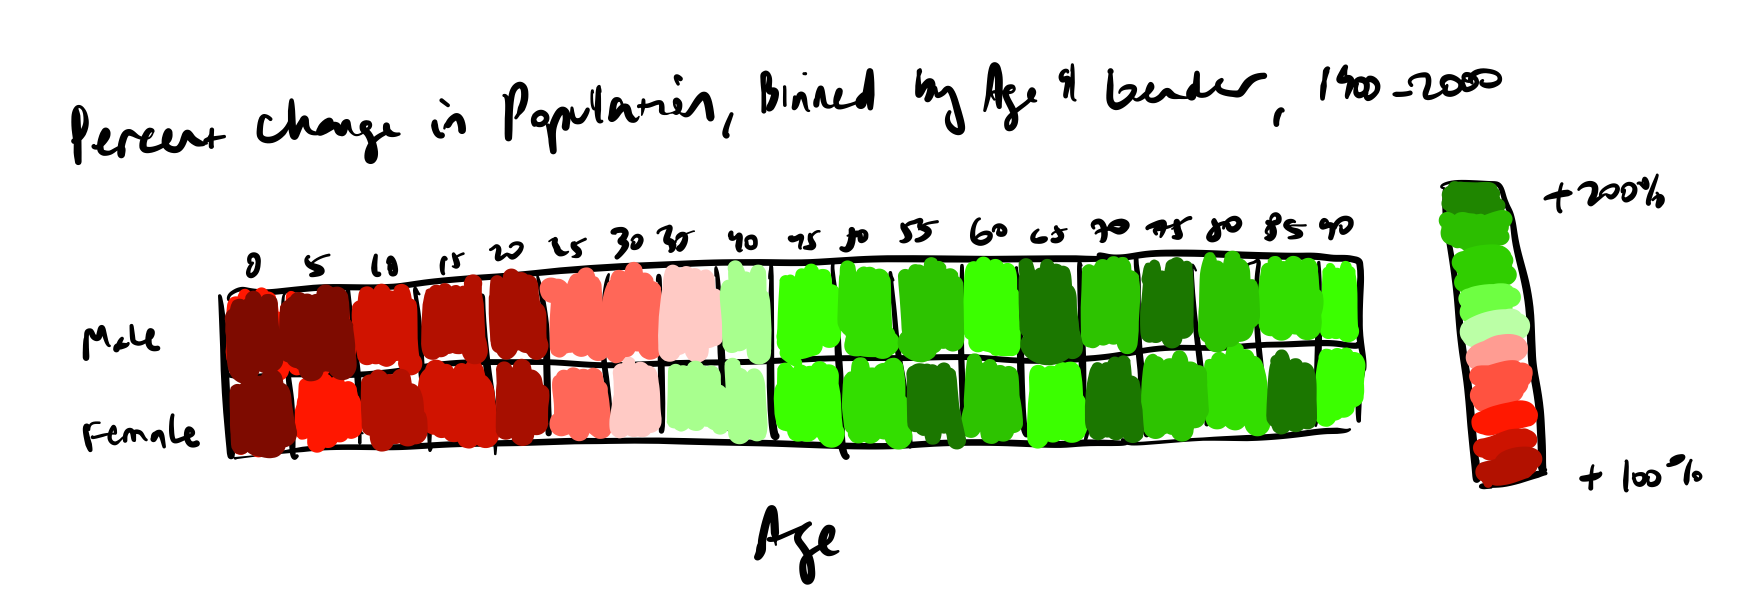 Percent Change in Population, Binned by Age & Gender, 1900-2000
+200%
0 5 10 15 20 25 30 35 40 45 50 55 60 65 70 75 80 85 90
Male
Female
+100%
Age